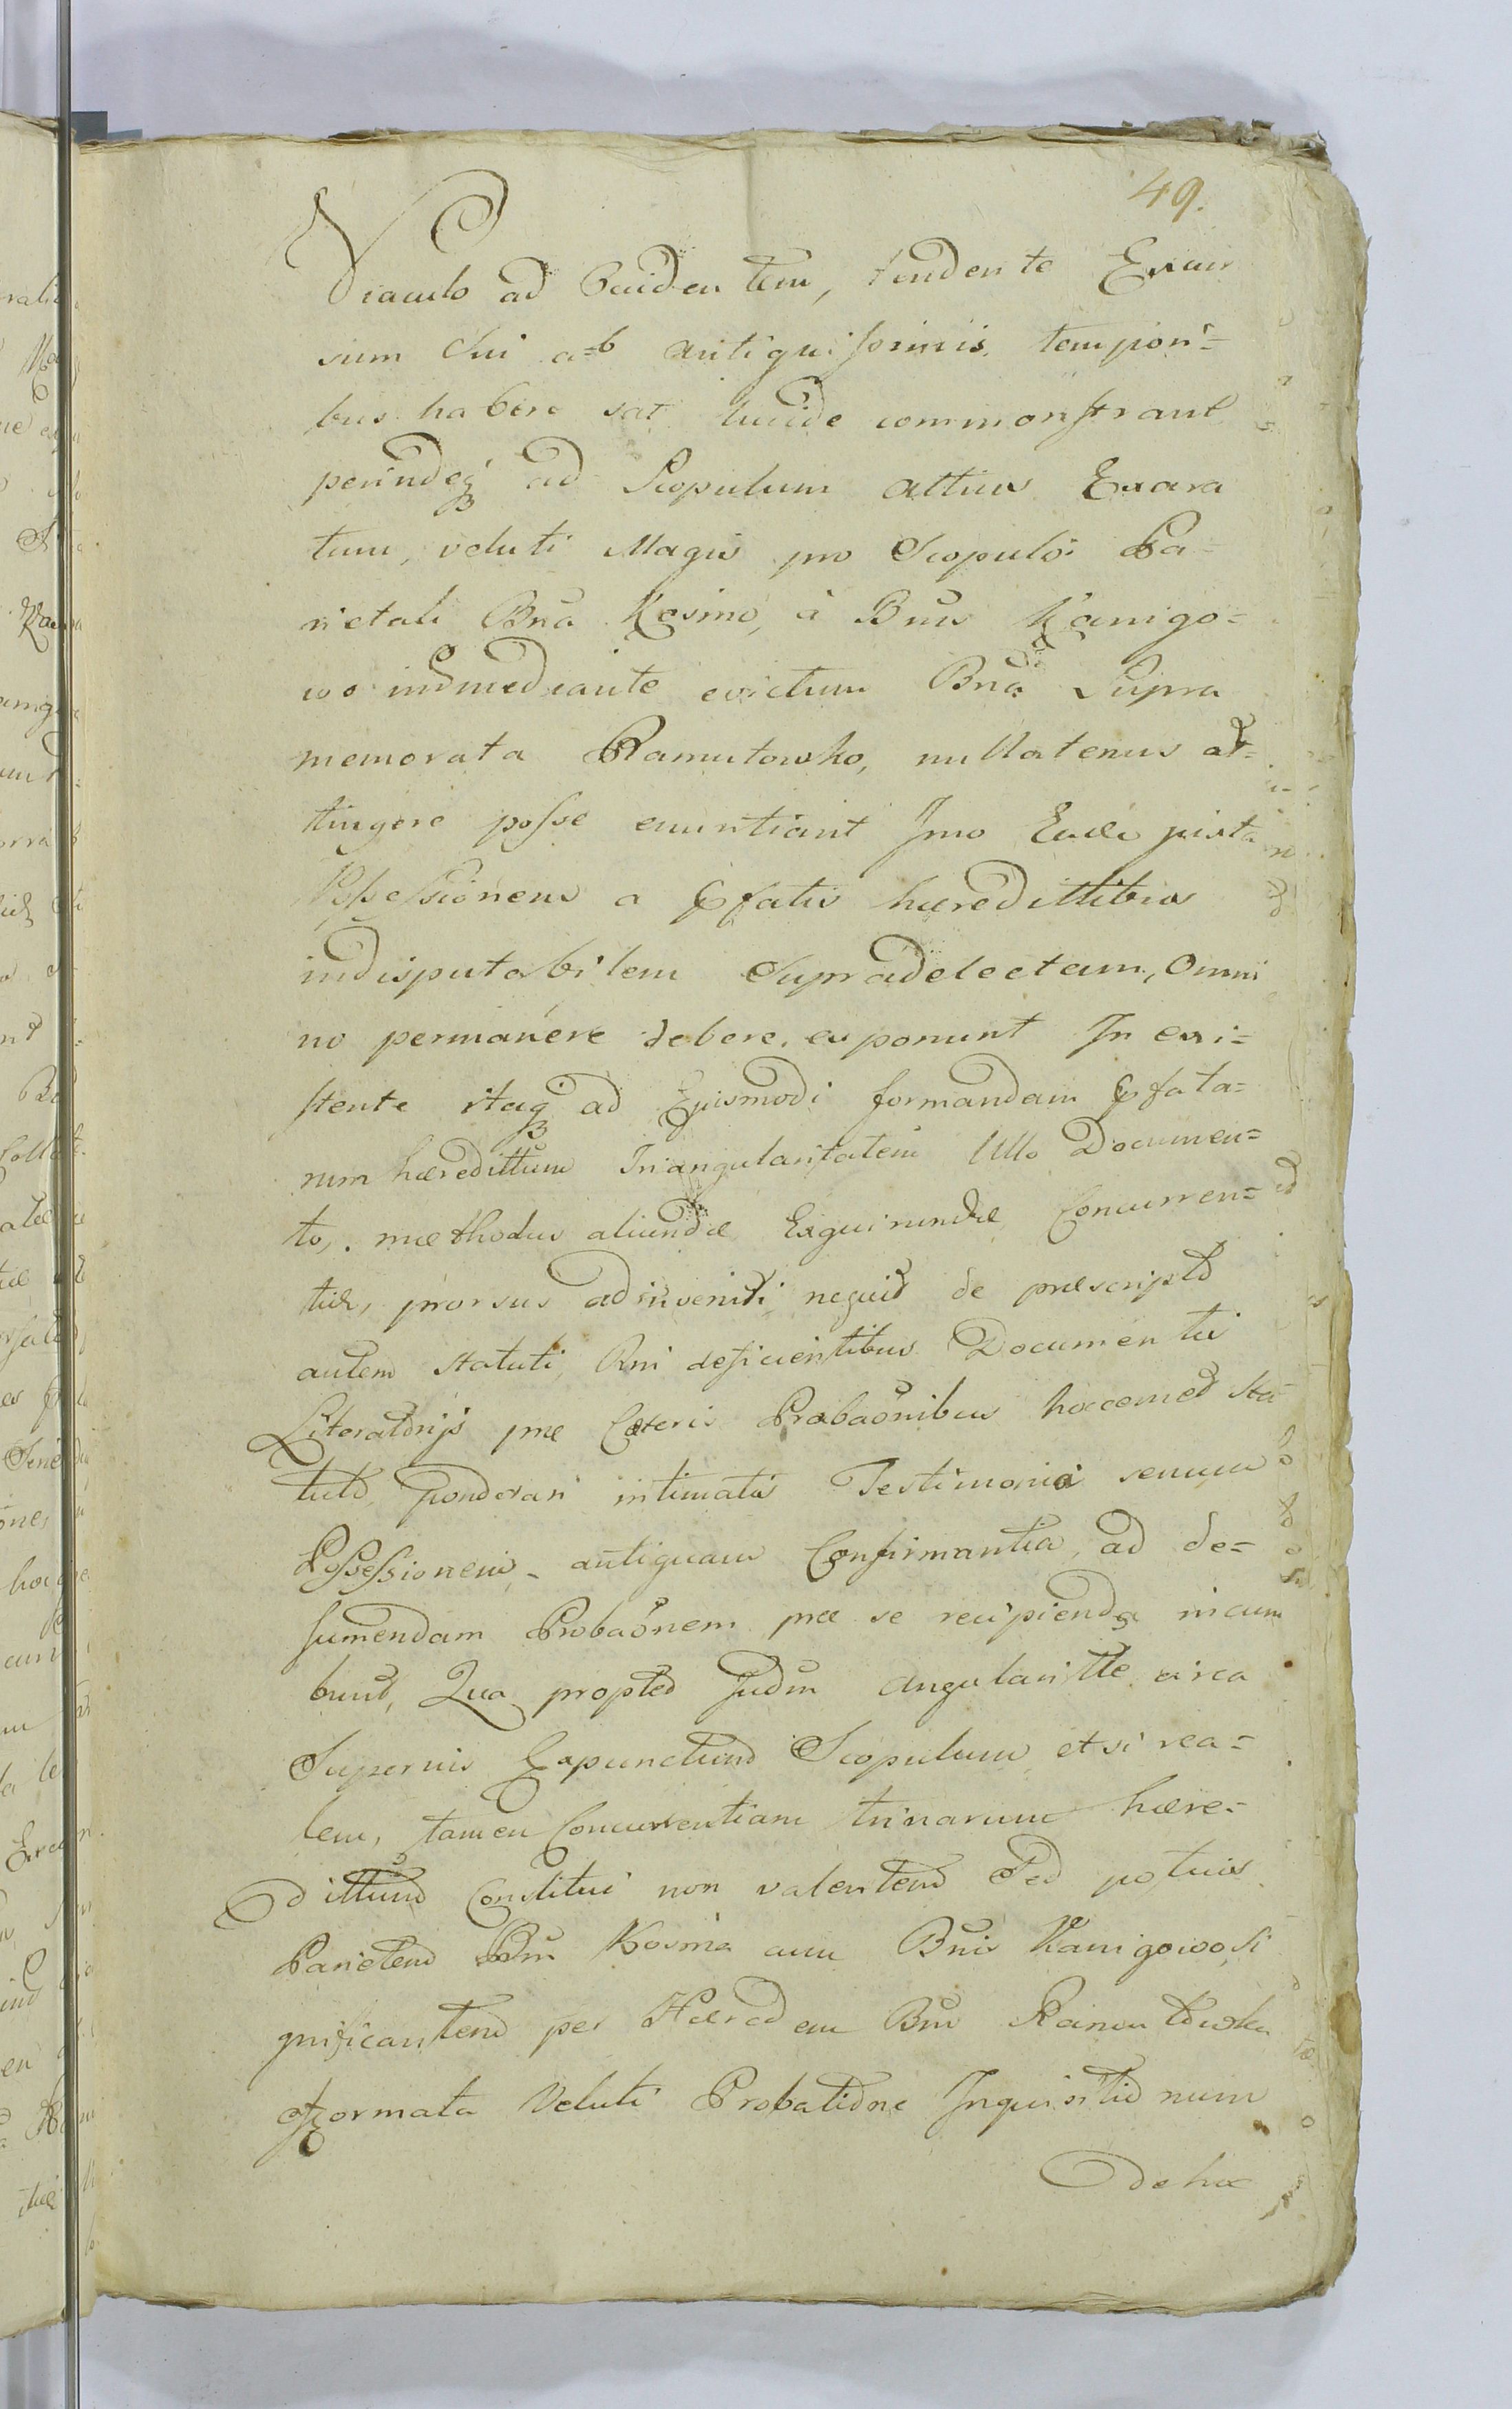 49.
Viaculo ad Euidentem, tendente Excur
sum sui a=b antiquissimis tempori=
bus habere sat lucide commonstrant
perindeq₃ ad Scopulum altius Exara
tum, veluti Magis pro Scopulo Pa=
rietali Bna Kosino, à Bnis Kanigo=
wo indmediante evictum Bna Supra
memorata Ramutowko, nullatenus at=
tingere posse enuntiant Imo Eade juxta
Possessionem a Effatis haeredittibus
indisputabilem Supradelectam, Omni
no permanere debere, exponunt In exi=
stente itaq₃ ad Ejusmodi formandam Effata=
rum haeredittum Triangularitatem Ullo Documen=
to, methodus aliunde Exquirendae Concurren=
tiae, prorsus adinveniri nequit de praescripto
autem statuti Rni deficientibus Documentis
Literatorijs prae Caeteris Probaonibus hoccemet sta=
tuto ponderari intimatis Testimonia senum
Possessionem antiquam Confirmantia, ad de=
sumendam Probaonem prae se recipienda incum
bunt, Qua propter Judm angularitte circa
Superius Expunctum Scopulum etsi rea=
lem, tamen Concurrentiam trinarum haere=
dittum Constitui non valentem Sed potius
Parietem Bm Kosino cum Bnis Kanigowo, si
gnificantem per Haeredem Bm Ramutowko
formata Veluti Probatione Inquisitionum
de hoc